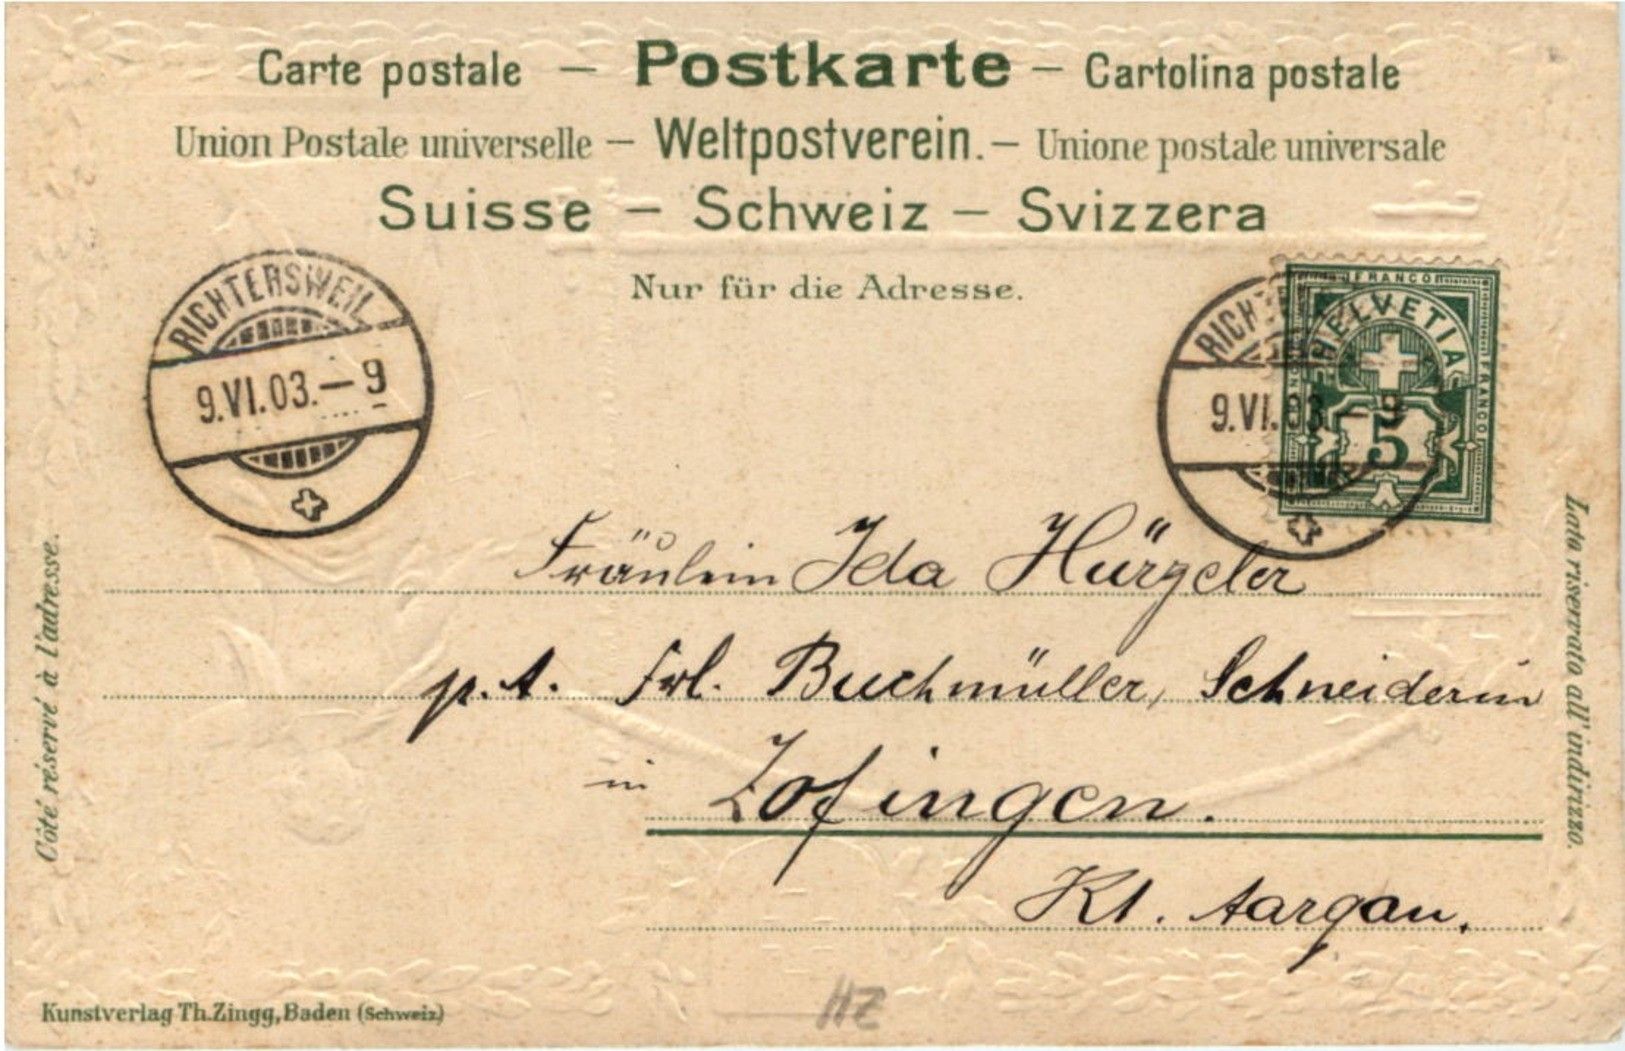 Carte postale — Postkarte — Cartolina postale
Union Postale universelle — Weltpostverein. — Unione postale universale
Suisse — Schweiz — Svizzera
Nur für die Adresse.
RICHTERSWEIL
9.VI.03.—9
RICHT
9.VI.03.—9
FRANCO
HELVETIA
FRANCO
5
Fräulein Ida Hürzeler
p. A. Frl. Buchmüller, Schneiderin
in Zofingen.
Kt. Aargau.
Côté réservé à l'adresse.
Lato riservato all'indirizzo.
Kunstverlag Th. Zingg, Baden (Schweiz)
HZ